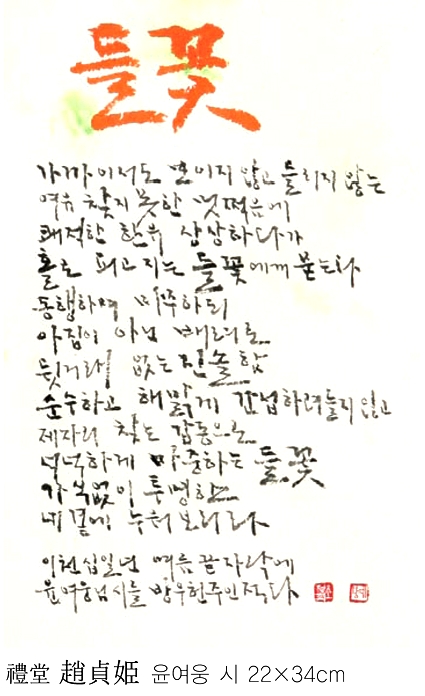 들꽃
가까이서도 보이지 않고 들리지 않는
여유 찾지 못한 멋쩍음에
쾌적한 한때 상상하다가
홀로 피고 지는 들꽃에게 묻는다
동행하며 마주하되
아집이 아닌 배려로
뒷거래 없는 진솔함
순수하고 해맑게 간섭하려들지 않고
제자리 찾는 감동으로
넉넉하게 마중하는 들꽃
가식없이 투명한
네 몸에 누워 보리라
이천십일년 여름 끝자락에
윤여웅님 시를 방우헌주인 적다
禮堂 趙貞姬 윤여웅 시 22×34cm